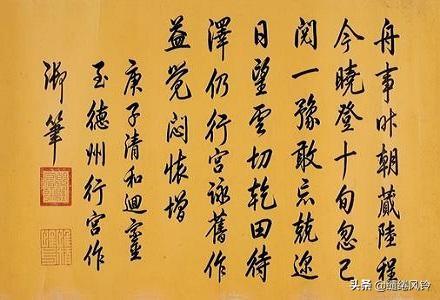 舟事昨朝蕆陸程
今晓登十旬忽已
閱一豫敢忘兢逾
日望雲切乾田待
澤仍行宫詠舊作
益覺悶懷增
庚子清和迴蹕
至德州行宫作
御筆
头条 @缱绻风铃